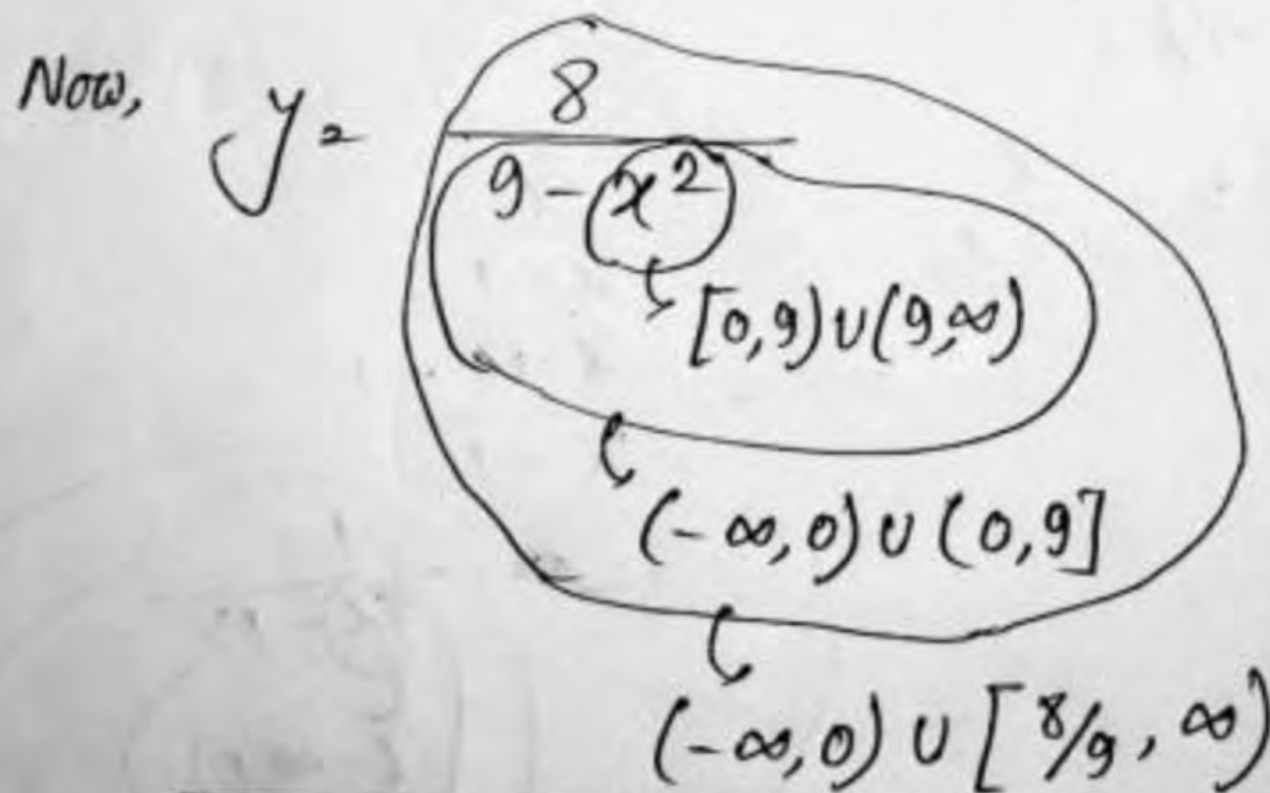 Now, y = 8
9 - x²
[0,9) ∪ (9,∞)
(-∞,0) ∪ (0,9]
(-∞,0) ∪ [8/9, ∞)